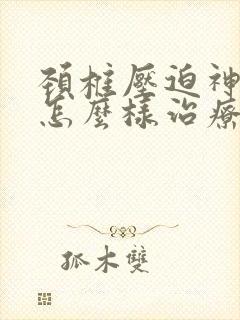 頚椎壓迫神
怎麼樣治療
孤木雙